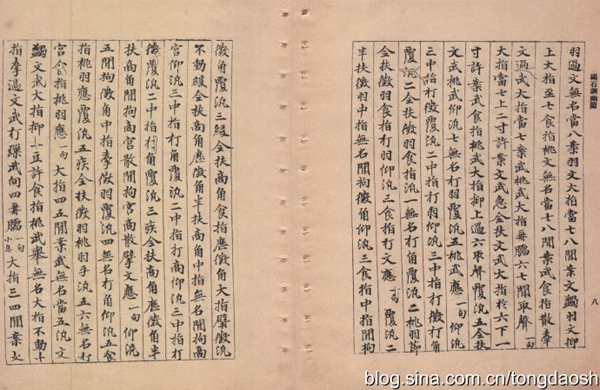 碣石調幽蘭
羽過文無名當八案羽文大指當七八閒案文蠲羽文抑
上大指至七食指挑文無名當七八閒案武食指散牽
文過武大指當七案武挑武大指臑六七閒取聲一句
大指當七上二寸許案文武急全扶文武大指於六下一
寸許案武食指挑武大指抑上過六取聲覆泛五全扶
文武挑武仰泛七無名打羽覆泛五挑武應一句仰泛
三中指打徵覆泛二中指打羽仰泛三中指打徵角
覆泛二全扶徵羽食指泛一無名打角覆泛二挑羽
全扶徵羽食指打羽仰泛三食指打文應一句覆泛二
半扶徵羽中指無名閒拘徵角仰泛三食指中指閒拘
八
徵角覆泛三緩全扶商角食指應徵角大指擘徵泛
不動緩全扶商角應徵角半扶商角中指無名閒拘商
宮仰泛三中指打角覆泛二中指打商仰泛三中指打
徵覆泛二中指打角覆泛三疾全扶商角應徵角半
扶商角閒拘商宮散閒拘宮商散擘文應一句仰泛
五閒拘徵角中指牽徵羽覆泛四無名打角仰泛五食
指挑羽應覆泛五疾全扶徵羽挑羽手泛五六無名打
宮食指挑羽應一句大指四五閒案武無名當五泛文
蠲文武大指抑小豆許食指挑武舉無名大指不動
指牽過文武打武間四臑一句小息大指三四閒案文
blog.sina.com.cn/tongdaosh